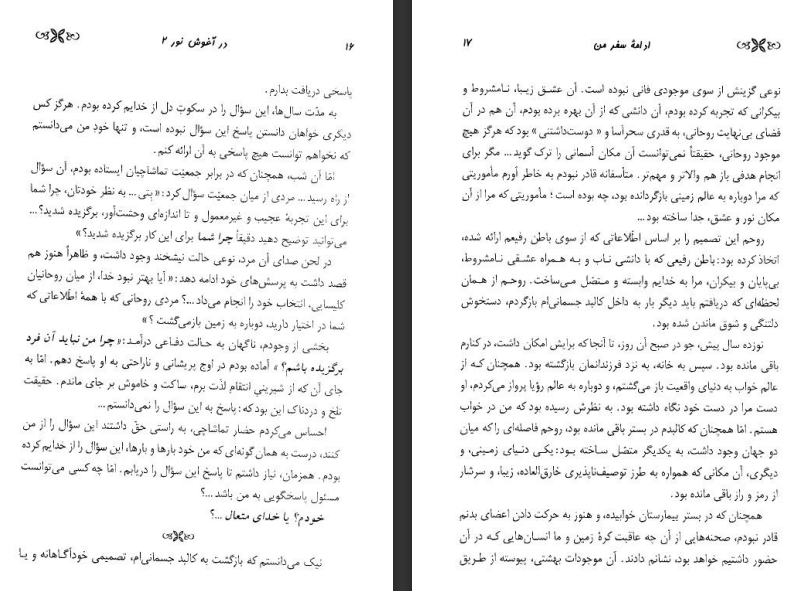 در آغوش نور ۲
۱۶
پاسخی دریافت بدارم.
به مدّت سال‌ها، این سؤال را در سکوتِ دل از خدایم کرده بودم. هرگز کس
دیگری خواهان دانستن پاسخ این سؤال نبوده است، و تنها خودِ من می‌دانستم
که نخواهم توانست هیچ پاسخی به آن ارائه کنم.
امّا آن شب، همچنان که در برابر جمعیّت تماشاچیان ایستاده بودم، آن سؤال
از راه رسید... مردی از میان جمعیّت سؤال کرد: «پتی... به نظر خودتان، چرا شما
برای این تجربهٔ عجیب و غیرمعمول و تا اندازه‌ای وحشت‌آور، برگزیده شدید؟...
می‌توانید توضیح دهید دقیقاً چرا شما برای این کار برگزیده شدید؟»
در لحن صدای آن مرد، نوعی حالت نیشخند وجود داشت، و ظاهراً هنوز هم
قصد داشت به پرسش‌های خود ادامه دهد: «آیا بهتر نبود خدا، از میان روحانیان
کلیسایی، انتخاب خود را انجام می‌داد...؟ مردی روحانی که با همهٔ اطّلاعاتی که
شما در اختیار دارید، دوباره به زمین بازمی‌گشت ؟»
بخشی از وجودم، ناگهان به حالت دفاعی درآمد: «چرا من نباید آن فرد
برگزیده باشم؟» آماده بودم در اوج پریشانی و ناراحتی به او پاسخ دهم. امّا به
جای آن که از شیرینیِ انتقام لذّت برم، ساکت و خاموش بر جای ماندم. حقیقت
تلخ و دردناک این بود که: پاسخ به این سؤال را نمی‌دانستم...
احساس می‌کردم حضار تماشاچی، به راستی حقّ داشتند این سؤال را از من
کنند، درست به همان گونه‌ای که من خود بارها و بارها، این سؤال را از خدایم کرده
بودم. همزمان، نیاز داشتم تا پاسخ این سؤال را دریابم. امّا چه کسی می‌توانست
مسئول پاسخگویی به من باشد ...؟
خودم؟ یا خدای متعال ...؟
نیک می‌دانستم که بازگشت به کالبد جسمانی‌ام، تصمیمی خودآگاهانه و یا
۱۷
ادامهٔ سفر من
نوعی گزینش از سوی موجودی فانی نبوده است. آن عشق زیبا، نامشروط و
بیکرانی که تجربه کرده بودم، آن دانشی که از آن بهره برده بودم، آن هم در آن
فضای بی‌نهایت روحانی، به قدری سحرآسا و «دوست‌داشتنی» بود که هرگز هیچ
موجود روحانی، حقیقتاً نمی‌توانست آن مکان آسمانی را ترک گوید... مگر برای
انجام هدفی باز هم والاتر و مهم‌تر. متأسفانه قادر نبودم به خاطر آورم مأموریتی
که مرا دوباره به عالم زمینی بازگردانده بود، چه بوده است؛ مأموریتی که مرا از آن
مکان نور و عشق، جدا ساخته بود...
روحم این تصمیم را بر اساس اطّلاعاتی که از سوی باطن رفیعم ارائه شده،
اتخاذ کرده بود: باطن رفیعی که با دانشی ناب و به همراه عشقی نامشروط،
بی‌پایان و بیکران، مرا به خدایم وابسته و متصّل می‌ساخت. روحم از همان
لحظه‌ای که دریافتم باید دیگر بار به داخل کالبد جسمانی‌ام بازگردم، دستخوش
دلتنگی و شوق ماندن شده بود.
نوزده سال پیش، جو در صبح آن روز، تا آنجا که برایش امکان داشت، در کنارم
باقی مانده بود. سپس به خانه، به نزد فرزندانمان بازگشته بود. همچنان که از
عالم خواب به دنیای واقعیت باز می‌گشتم، و دوباره به عالم رؤیا پرواز می‌کردم، او
دست مرا در دست خود نگاه داشته بود. به نظرش رسیده بود که من در خواب
هستم. امّا همچنان که کالبدم در بستر باقی مانده بود، روحم فاصله‌ای را که میان
دو جهان وجود داشت، به یکدیگر متصّل ساخته بود: یکی دنیای زمینی، و
دیگری، آن مکانی که همواره به طرز توصیف‌ناپذیری خارق‌العاده، زیبا، و سرشار
از رمز و راز باقی مانده بود.
همچنان که در بستر بیمارستان خوابیده، و هنوز به حرکت دادن اعضای بدنم
قادر نبودم، صحنه‌هایی از آن چه عاقبت کرهٔ زمین و ما انسان‌هایی که در آن
حضور داشتیم خواهد بود، نشانم دادند. آن موجودات بهشتی، پیوسته از طریق